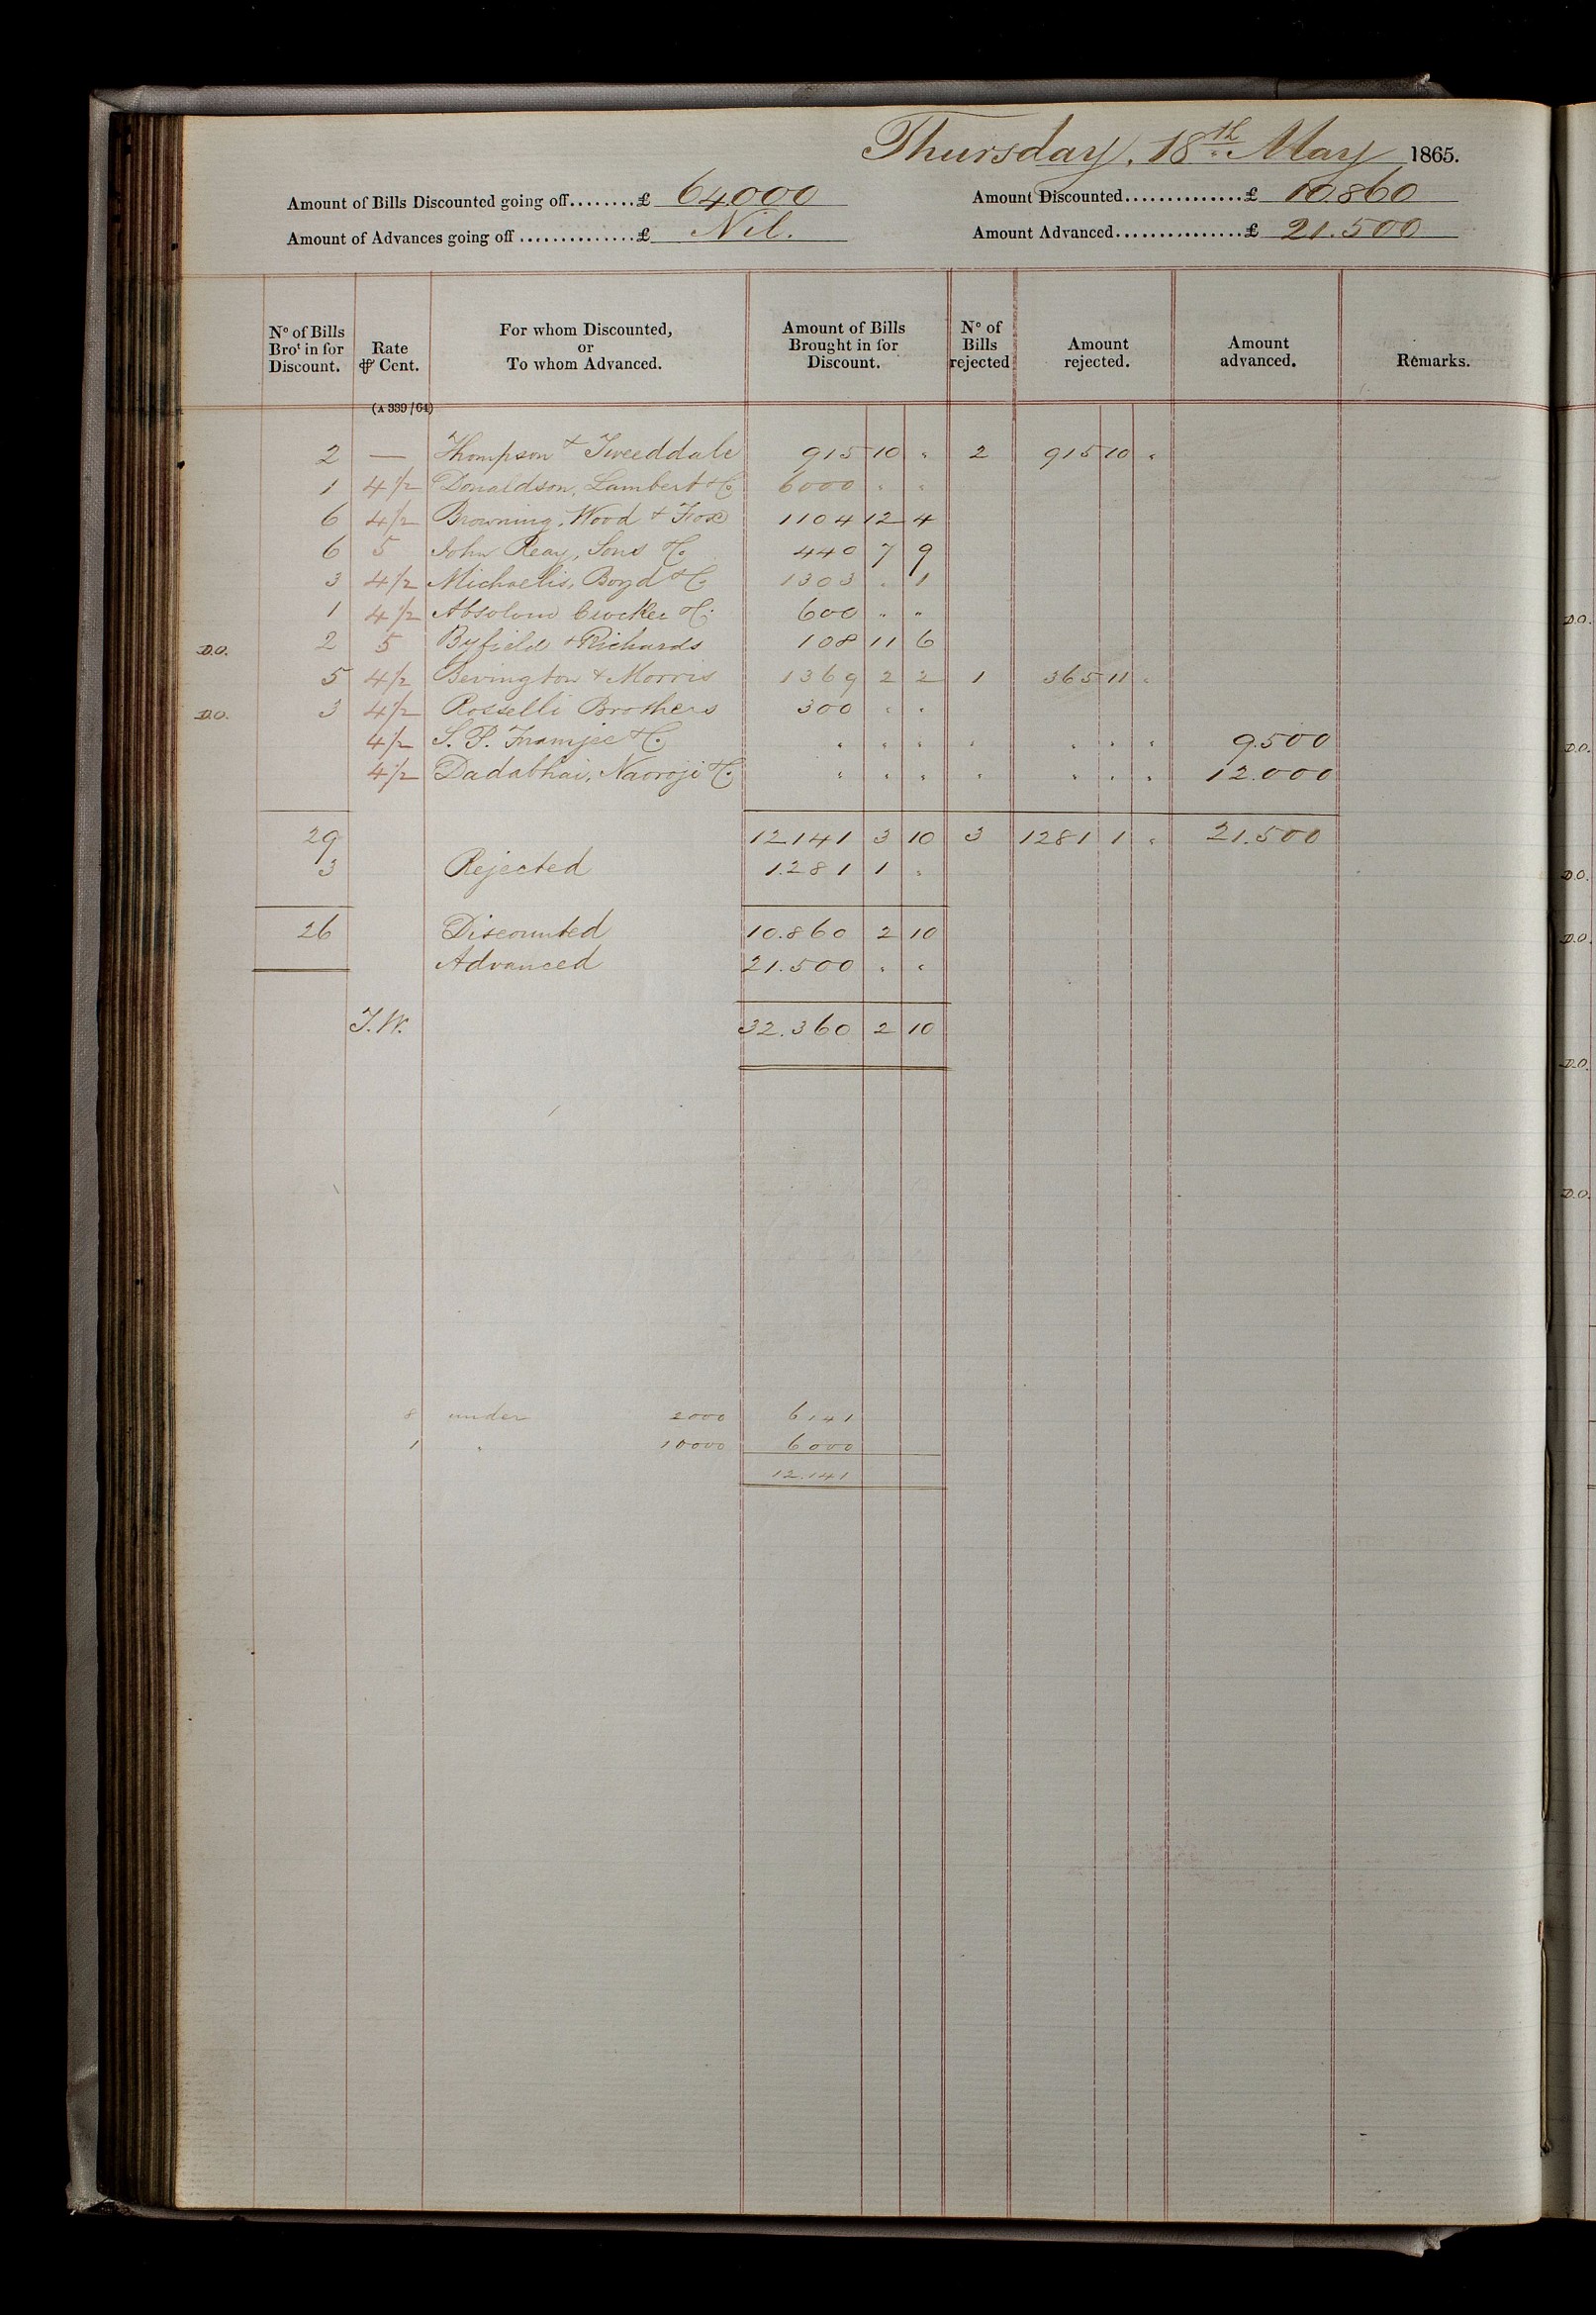 Thursday, 18th May 1865.
Amount of Bills Discounted going off........£ 64.000 Amount Discounted..............£ 10.860
Amount of Advances going off..............£ Nil. Amount Advanced...............£ 21.500
No of Bills Brot in for Discount. Rate ⅌ Cent. For whom Discounted, or To whom Advanced. Amount of Bills Brought in for Discount. No of Bills rejected Amount rejected. Amount advanced. Remarks.
(A 339/64)
2 — Thompson & Tweeddale 915 10 " 2 915 10 "
1 4½ Donaldson, Lambert & Co 6000 " "
6 4½ Browning, Wood & Fox 1104 12 4
6 5 John Reay, Sons & Co. 440 7 9
3 4½ Michaelis, Boyd & Co 1303 " 1
1 4½ Absolom Crocker & Co. 600 " "
D.O. 2 5 Byfield & Richards 108 11 6
5 4½ Bevington & Morris 1369 2 2 1 365 11 "
D.O. 3 4½ Rosselli Brothers 300 " "
4½ S. P. Framjee & Co. " " " " " " " 9.500
4½ Dadabhai, Naoroji & Co. " " " " " " " 12.000
29 12141 3 10 3 1281 1 " 21.500
3 Rejected 1.281 1 "
26 Discounted 10.860 2 10
Advanced 21.500 " "
J.W. 32.360 2 10
8 under 2000 6141
1 " 10000 6000
12.141
D.O.
D.O.
D.O.
D.O.
D.O.
D.O.